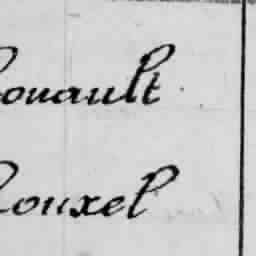 Rouault
Rouxel